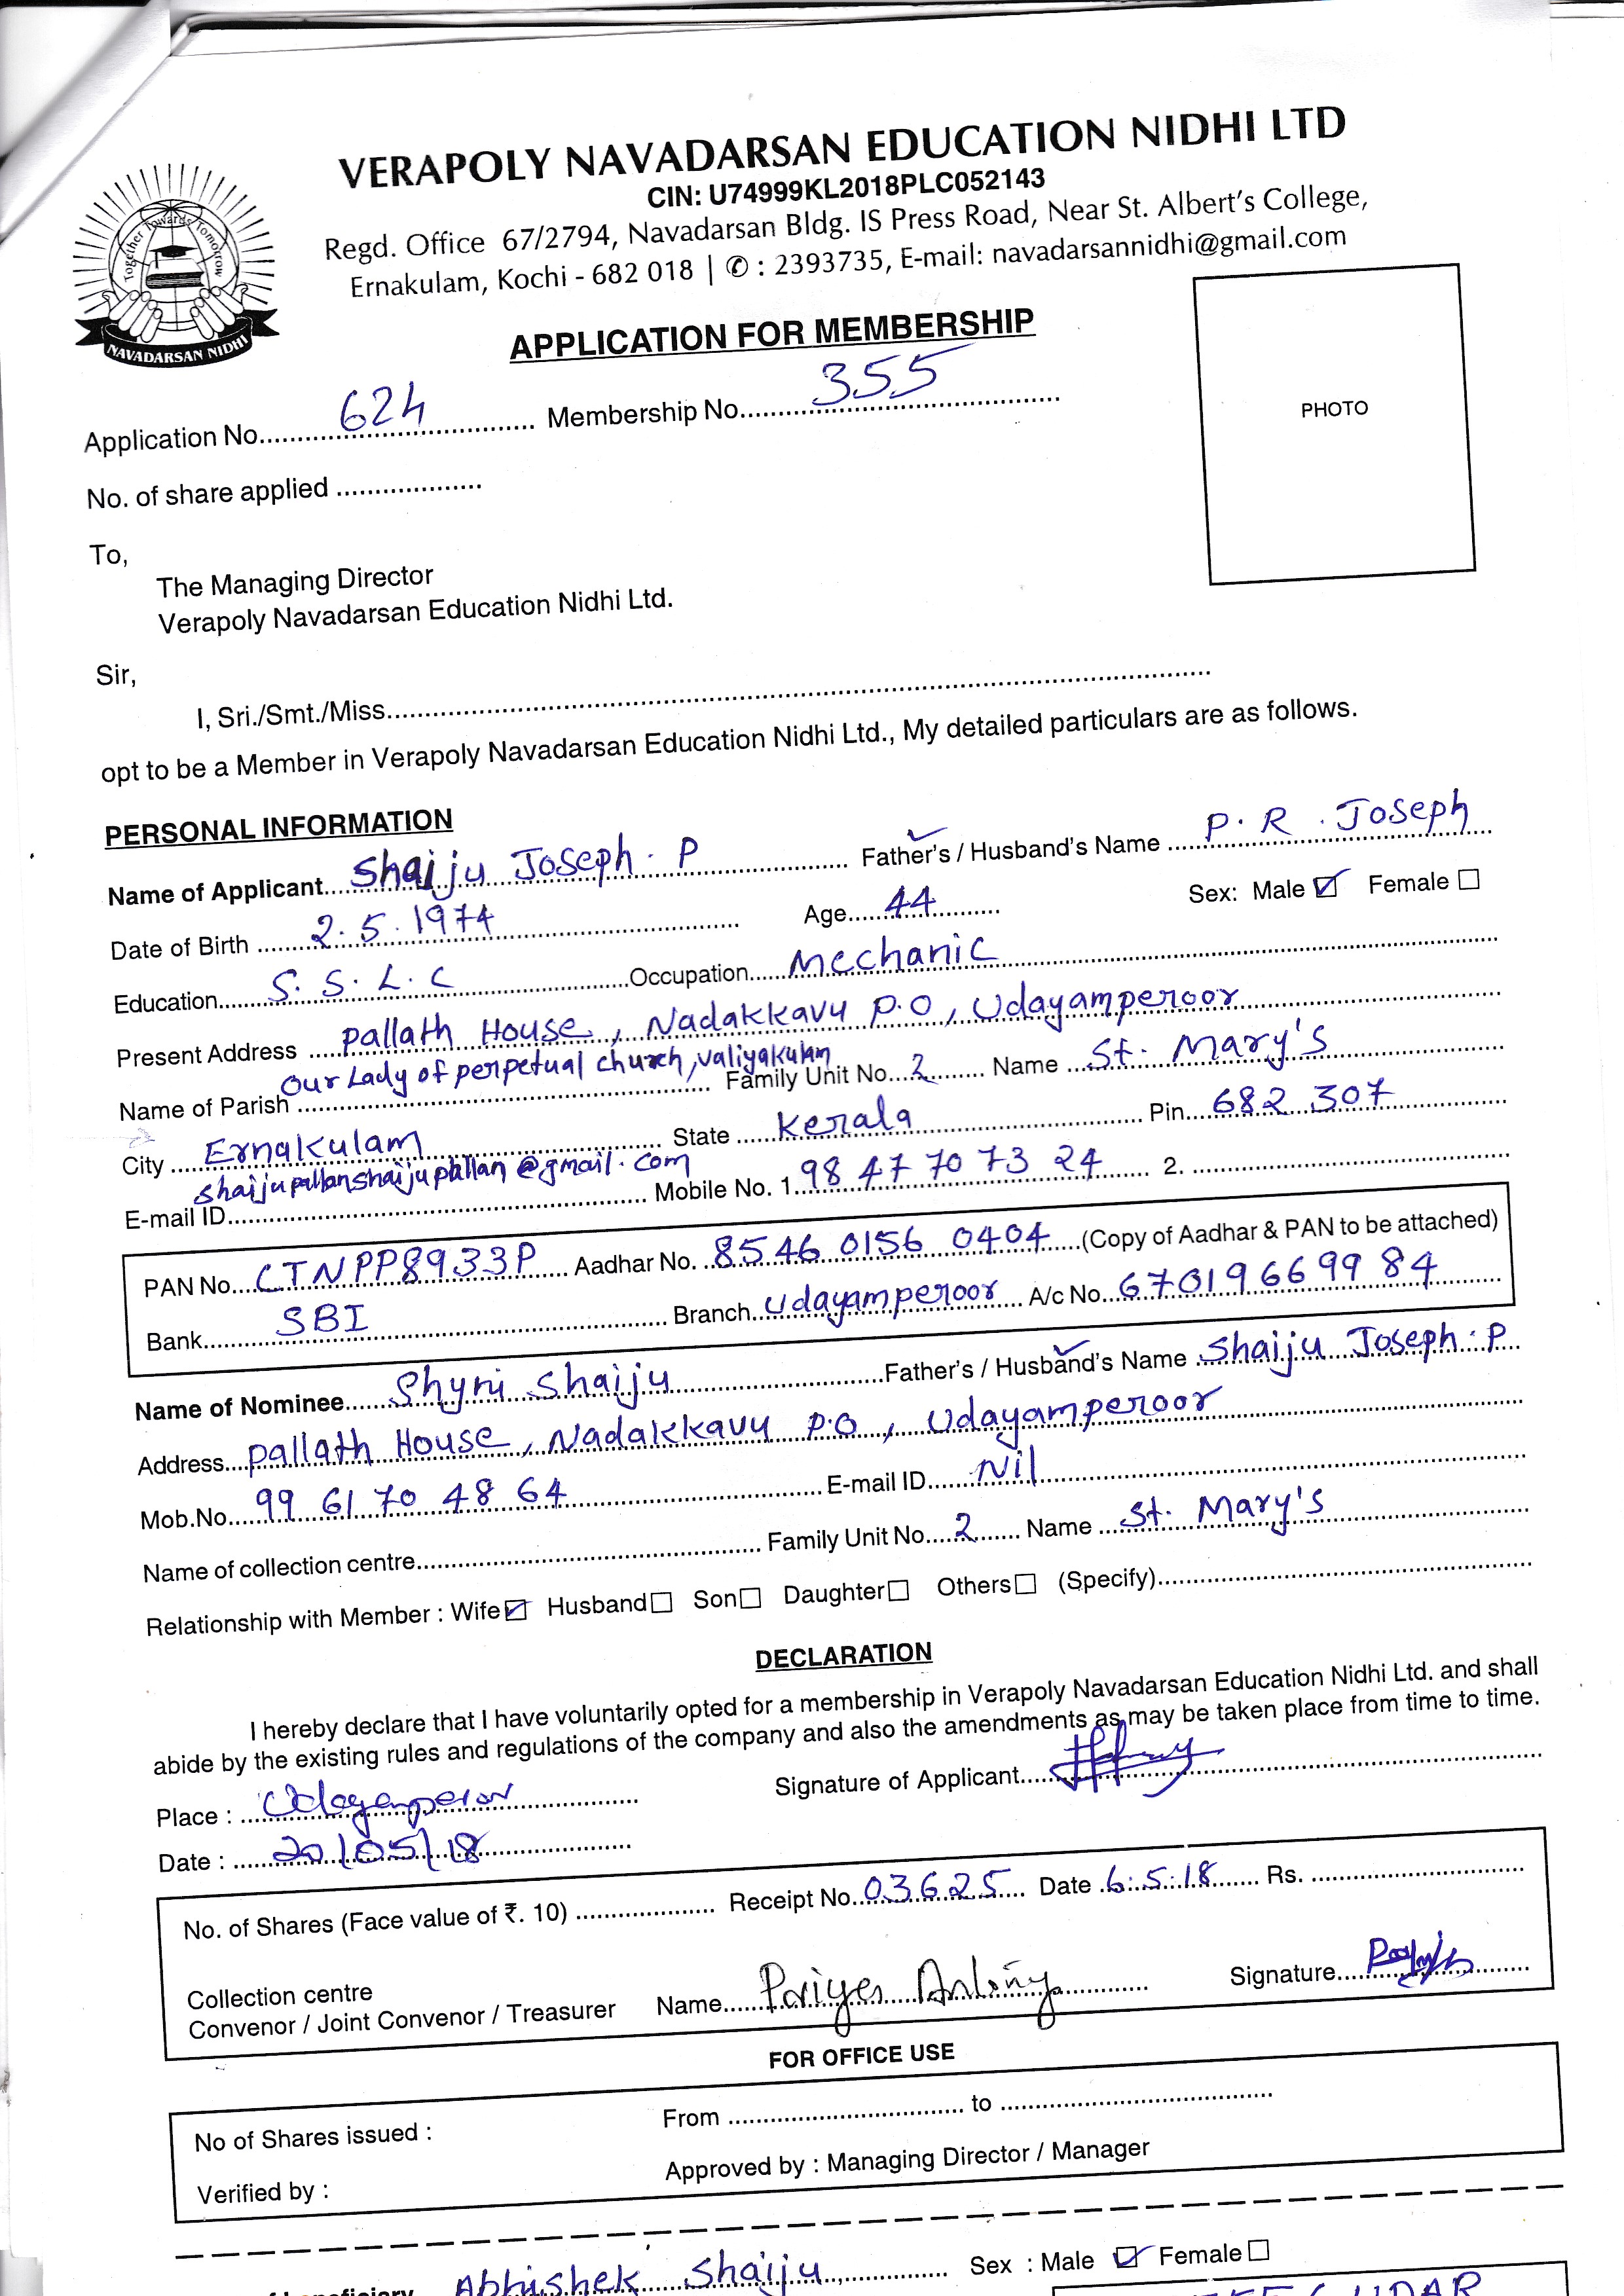 VERAPOLY NAVADARSAN EDUCATION NIDHI LTD
CIN: U74999KL2018PLC052143
Regd. Office 67/2794, Navadarsan Bldg. IS Press Road, Near St. Albert's College,
Ernakulam, Kochi - 682 018 | ✆ : 2393735, E-mail: navadarsannidhi@gmail.com
Together Towards Tomorrow
NAVADARSAN NIDHI
APPLICATION FOR MEMBERSHIP
PHOTO
Application No. 624 Membership No. 355
No. of share applied
To,
The Managing Director
Verapoly Navadarsan Education Nidhi Ltd.
Sir,
I, Sri./Smt./Miss
opt to be a Member in Verapoly Navadarsan Education Nidhi Ltd., My detailed particulars are as follows.
PERSONAL INFORMATION
Name of Applicant Shaiju Joseph. P Father's / Husband's Name P. R. Joseph
Date of Birth 2.5.1974 Age 44 Sex: Male ☑ Female ☐
Education S.S.L.C Occupation Mechanic
Present Address Pallath House, Nadakkavu P.O, Udayamperoor
Name of Parish Our Lady of perpetual church, valiyakulam Family Unit No. 2 Name St. Mary's
City Ernakulam State Kerala Pin 682 307
E-mail ID shaijupallanshaijupallan@gmail.com Mobile No. 1. 98 47 70 73 24 2.
PAN No. CTNPP8933P Aadhar No. 8546 0156 0404 (Copy of Aadhar & PAN to be attached)
Bank SBI Branch Udayamperoor A/c No. 67019669984
Name of Nominee Shyni Shaiju Father's / Husband's Name Shaiju Joseph. P
Address Pallath House, Nadakkavu P.O, Udayamperoor
Mob.No. 99 61 70 48 64 E-mail ID Nil
Name of collection centre Family Unit No. 2 Name St. Mary's
Relationship with Member : Wife ☑ Husband ☐ Son ☐ Daughter ☐ Others ☐ (Specify)
DECLARATION
I hereby declare that I have voluntarily opted for a membership in Verapoly Navadarsan Education Nidhi Ltd. and shall
abide by the existing rules and regulations of the company and also the amendments as may be taken place from time to time.
Place : Udayamperoor Signature of Applicant
Date : 20/05/18
No. of Shares (Face value of ₹. 10) Receipt No. 03625 Date 6.5.18 Rs.
Collection centre
Convenor / Joint Convenor / Treasurer Name Antony Signature
FOR OFFICE USE
No of Shares issued : From to
Verified by : Approved by : Managing Director / Manager
Abhishek Shaiju Sex : Male ☑ Female ☐